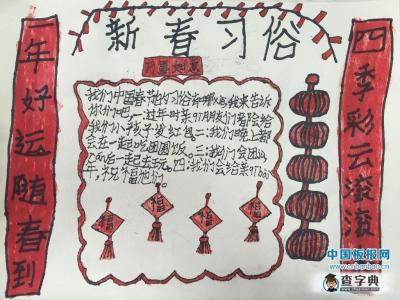 新春习俗
万事如意
一年好运随春到
四季彩云滚滚
我们中国春节的习俗有哪些,我来告诉
你们吧,一:过年时亲朋朋友们都会给
我们小孩子发红包。二:我们晚上都
会在一起吃团圆饭。三:我们会团圆
之后一起去玩。四:我们会给亲朋bai
年,祝福他们
福
福
福
福
中国板报网
www.cnbanbao.cn
查字典
chazidian.com